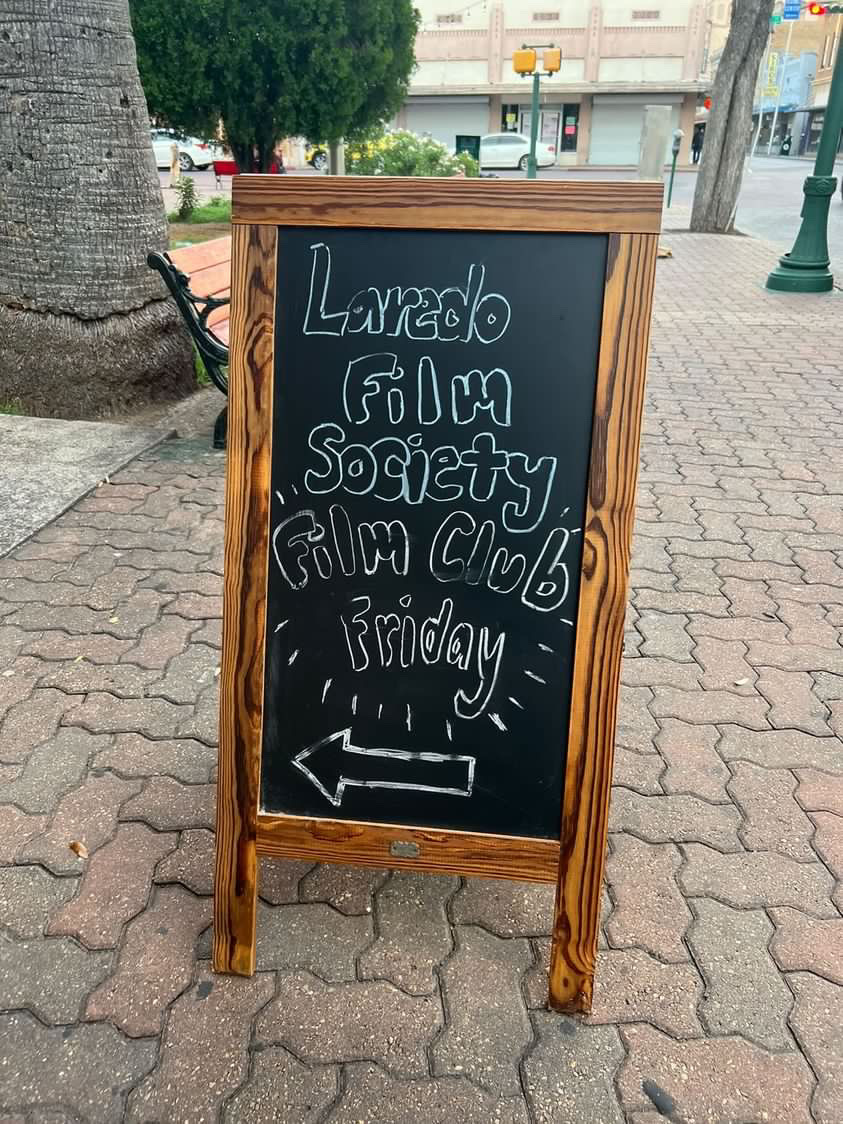 Laredo
Film
Society
Film Club
Friday